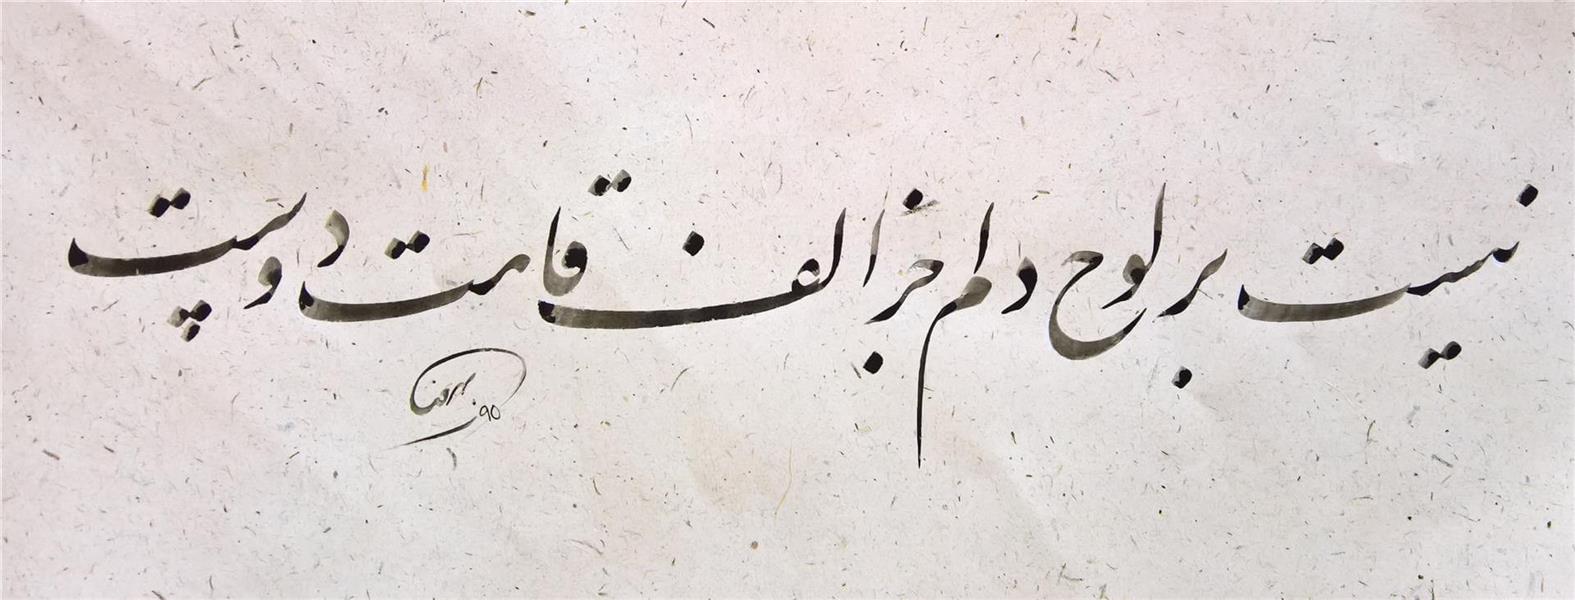 نیست بر لوح دلم جز الف قامت دوست
۹۰